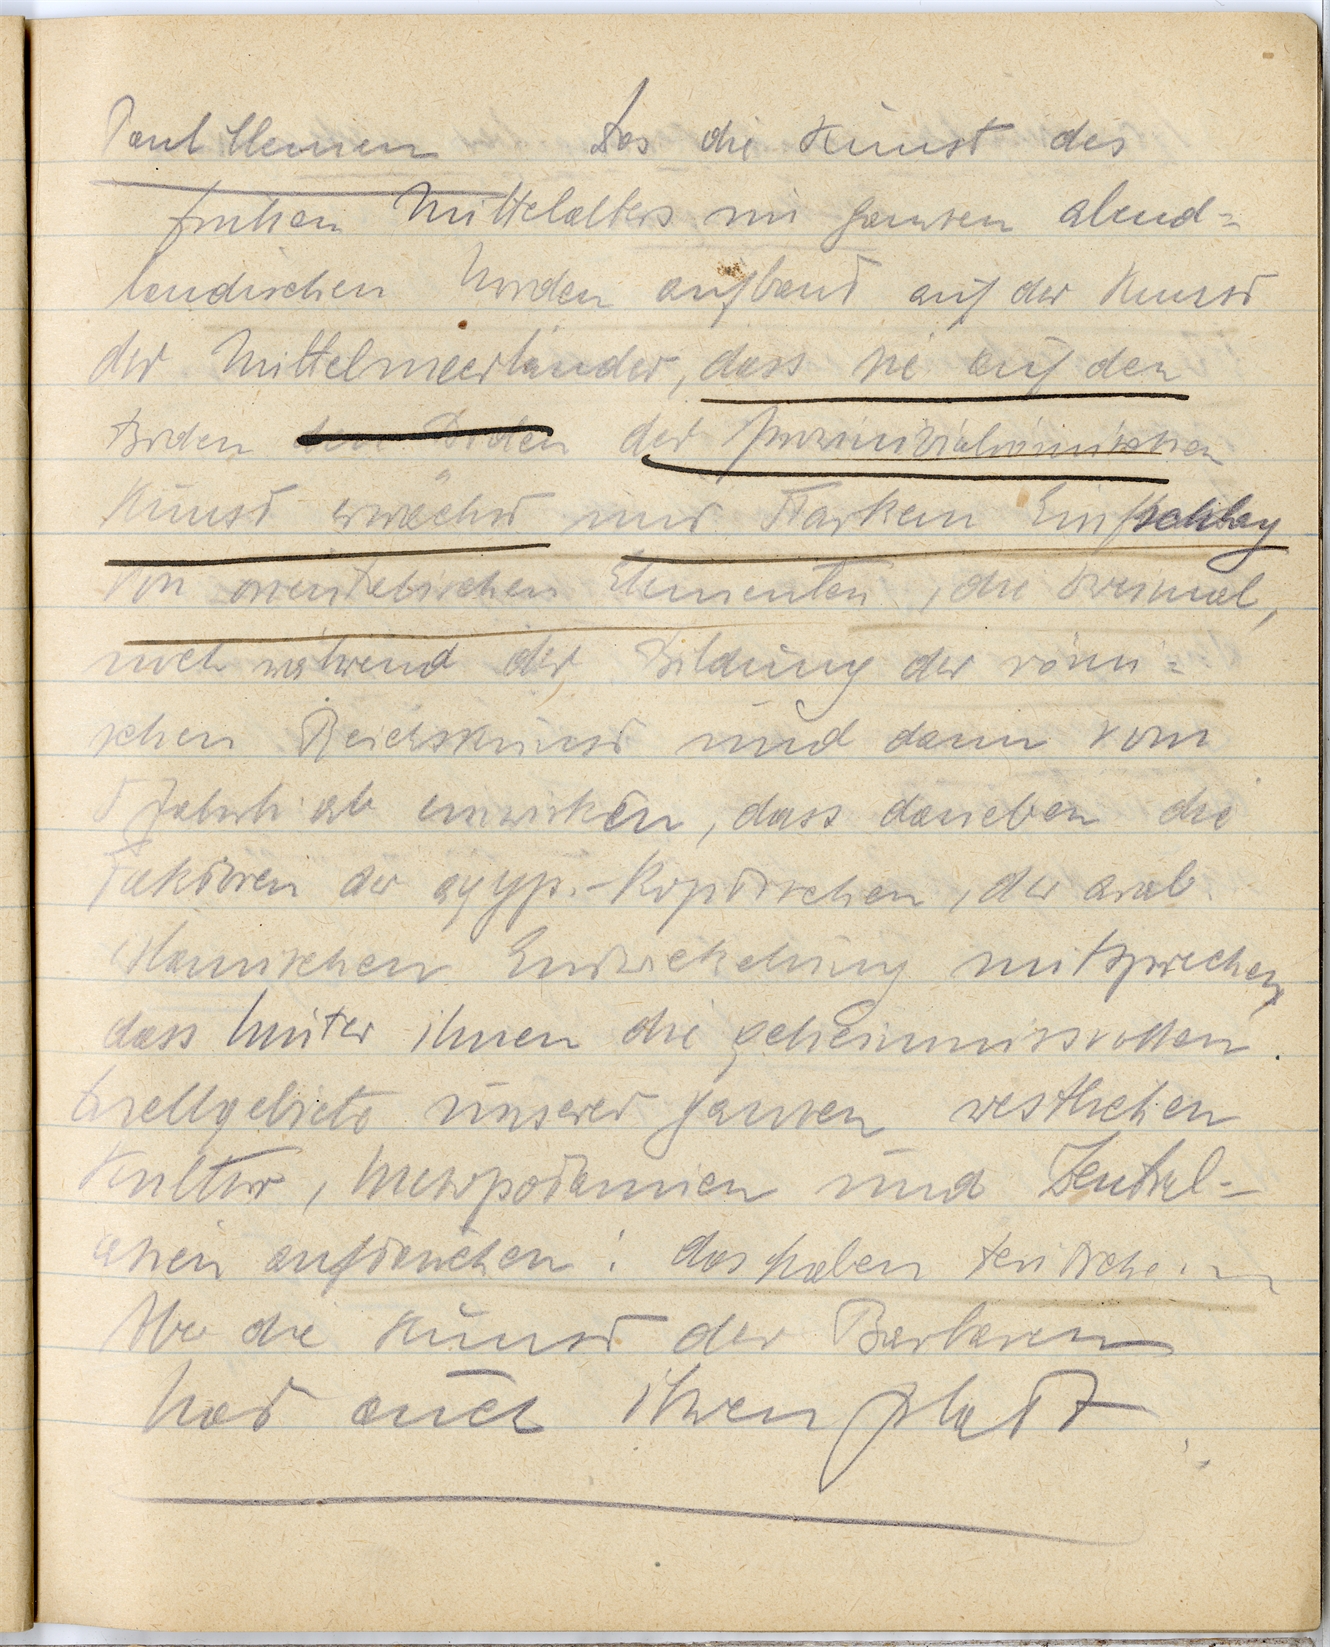 Paul Clemen Das die Kunst des
frühen Mittelalters im ganzen abend=
ländischen Norden aufbaut auf der Kunst
der Mittelmeerländer, dass sie auf den
Boden dem Boden der provinzialrömischen
Kunst erwächst mit starkem Einschlag
von orientalischen Elementen, die zweimal,
noch während der Bildung der römi=
schen Reichskunst und dann vom
5 Jahrh ab einwirken, dass daneben die
Faktoren der ägyp.-koptischen, der arab.
islamischen Entwickelung mitsprechen,
dass hinter ihnen die geheimnisvollen
Quellgebiete unserer ganzen westlichen
Kultur, Mesopotamien und Zentral=
asien auftauchen: das haben
Aber die Kunst der Barbaren
hat auch ihren platz